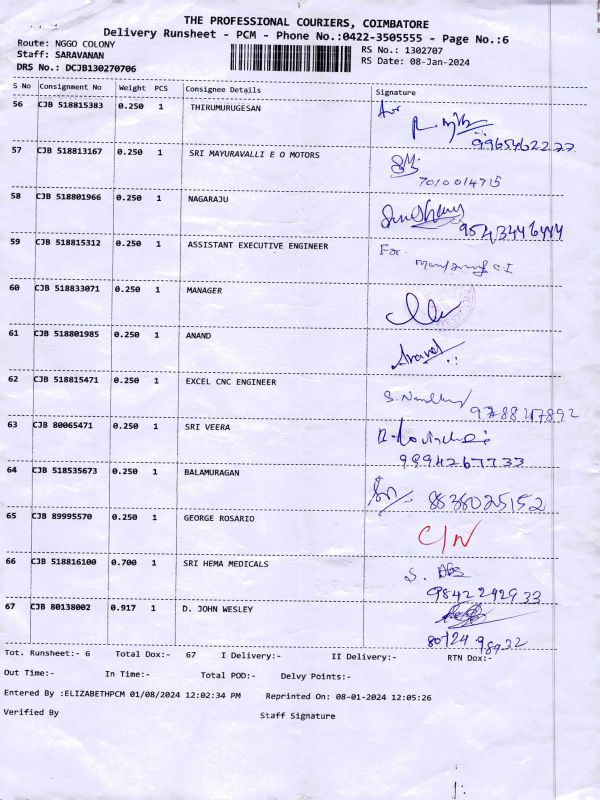 THE PROFESSIONAL COURIERS, COIMBATORE
Delivery Runsheet - PCM - Phone No.:0422-3505555 - Page No.:6
Route: NGGO COLONY RS No.: 1302707
Staff: SARAVANAN RS Date: 08-Jan-2024
DRS No.: DCJB130270706
S No Consignment No Weight PCS Consignee Details Signature
56 CJB 518815383 0.250 1 THIRUMURUGESAN
9965462277
57 CJB 518813167 0.250 1 SRI MAYURAVALLI E O MOTORS
7010014715
58 CJB 518801966 0.250 1 NAGARAJU
9543446444
59 CJB 518815312 0.250 1 ASSISTANT EXECUTIVE ENGINEER For
60 CJB 518833071 0.250 1 MANAGER
61 CJB 518801985 0.250 1 ANAND Anand
62 CJB 518815471 0.250 1 EXCEL CNC ENGINEER
9788417892
63 CJB 80065471 0.250 1 SRI VEERA
9994267733
64 CJB 518535673 0.250 1 BALAMURAGAN
8638025152
65 CJB 89995570 0.250 1 GEORGE ROSARIO C/N
66 CJB 518816100 0.700 1 SRI HEMA MEDICALS S.
9842292933
67 CJB 80138002 0.917 1 D. JOHN WESLEY
Tot. Runsheet:- 6 Total Dox:- 67 I Delivery:- II Delivery:- RTN Dox:-
Out Time:- In Time:- Total POD:- Delvy Points:-
Entered By :ELIZABETHPCM 01/08/2024 12:02:34 PM Reprinted On: 08-01-2024 12:05:26
Verified By Staff Signature